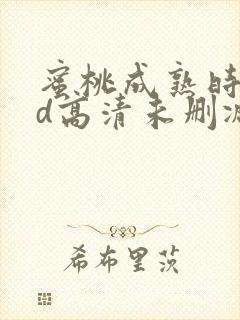 蜜桃成熟时
d高清未删减
希布里茨